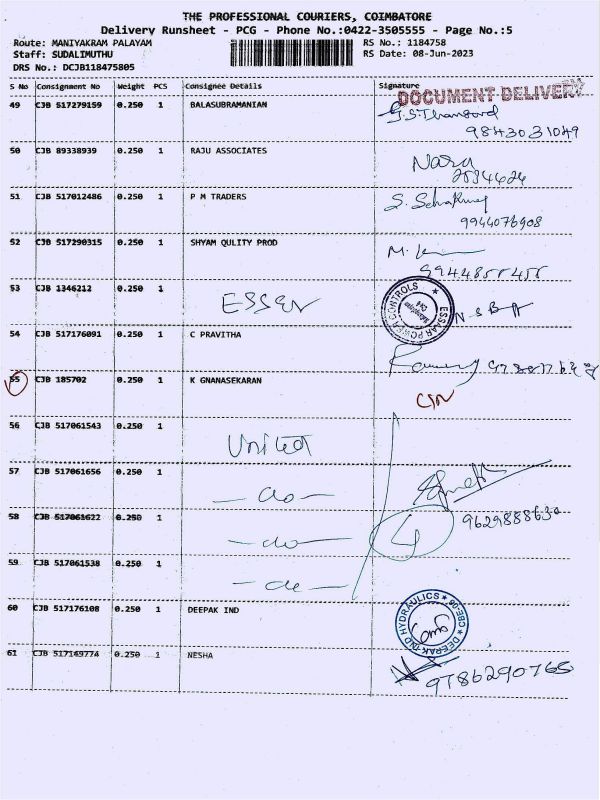 THE PROFESSIONAL COURIERS, COIMBATORE
Delivery Runsheet - PCG - Phone No.:0422-3505555 - Page No.:5
Route: MANIYAKRAM PALAYAM RS No.: 1184758
Staff: SUDALIMUTHU RS Date: 08-Jun-2023
DRS No.: DCJB118475805
S No Consignment No Weight PCS Consignee Details Signature
DOCUMENT DELIVERY
49 CJB 517279159 0.250 1 BALASUBRAMANIAN
9843031049
50 CJB 89338939 0.250 1 RAJU ASSOCIATES
51 CJB 517012486 0.250 1 P M TRADERS
9944076908
52 CJB 517290315 0.250 1 SHYAM QULITY PROD
9944855455
53 CJB 1346212 0.250 1 ESSEN
ESSAR POWER CONTROLS
54 CJB 517176091 0.250 1 C PRAVITHA
55 CJB 185702 0.250 1 K GNANASEKARAN
56 CJB 517061543 0.250 1 United
57 CJB 517061656 0.250 1 -do-
58 CJB 517061622 0.250 1 -do- 4 9629888630
59 CJB 517061538 0.250 1 -do-
60 CJB 517176108 0.250 1 DEEPAK IND
DEEPAK IND HYDRAULICS * CBE-06 *
61 CJB 517149774 0.250 1 NESHA
9786290765